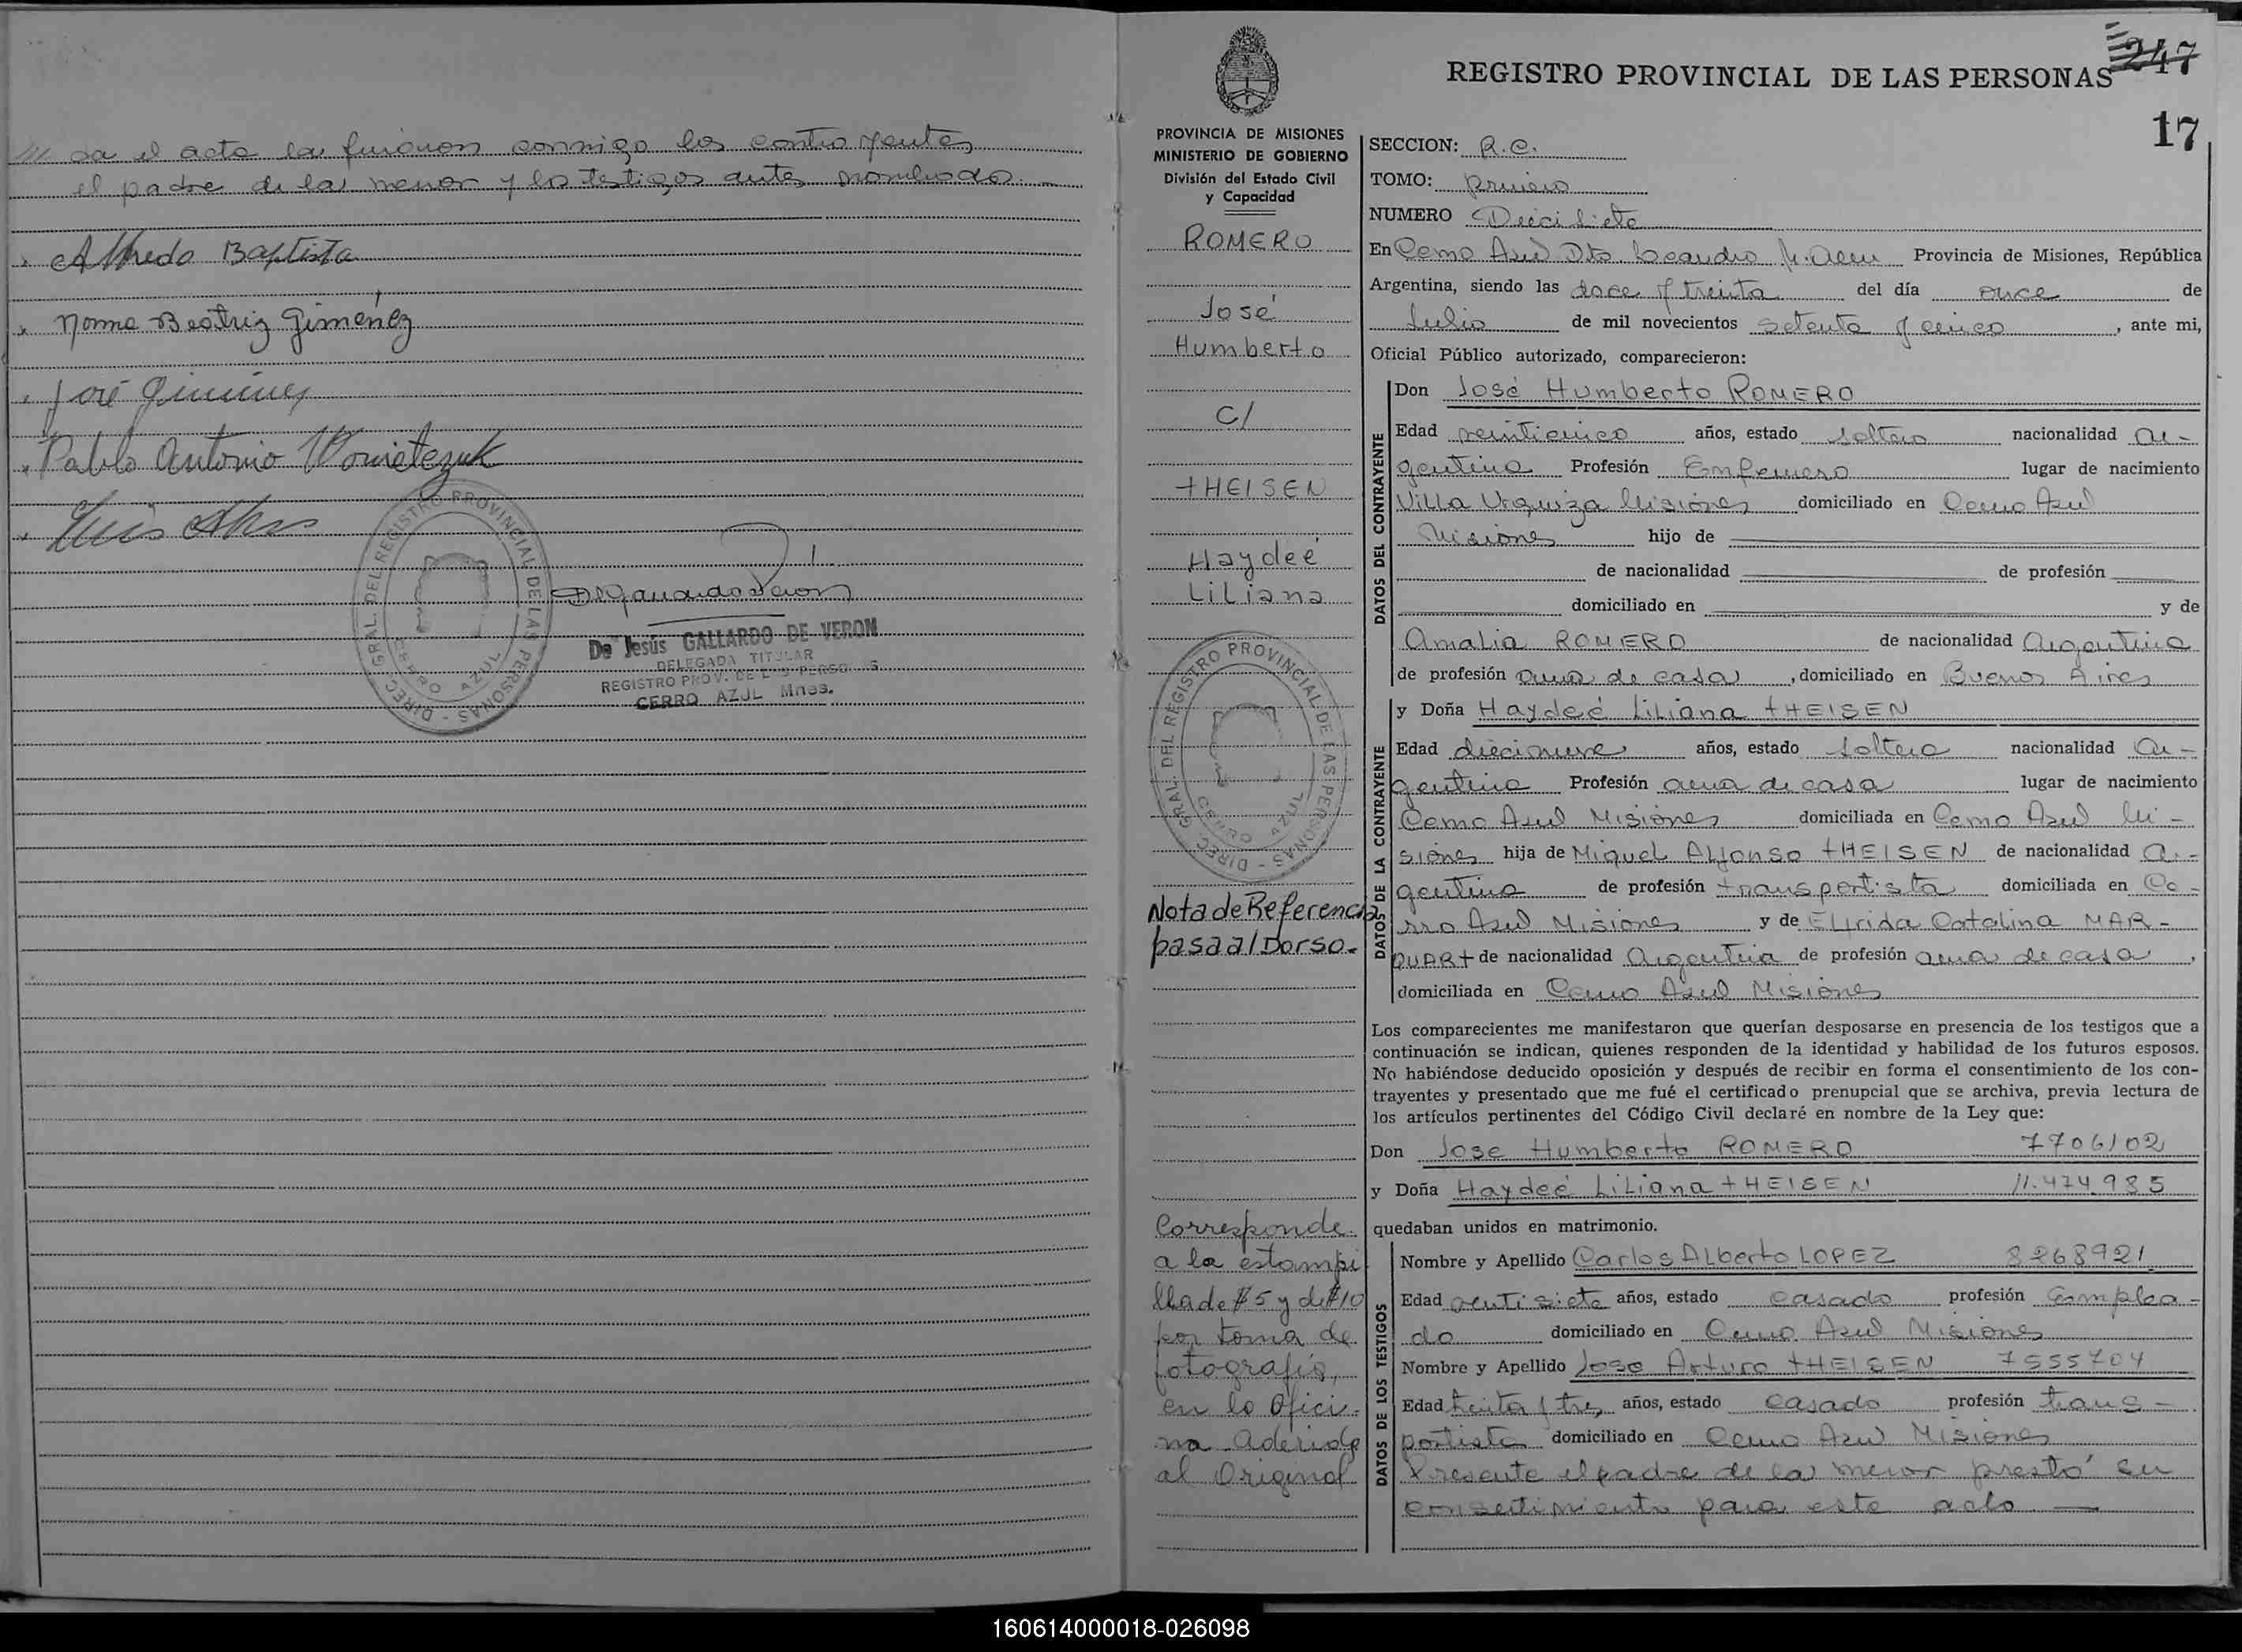 /// da el acta la firmaron conmigo los contrayentes
el padre de la menor y los testigos antes nombrados. —
Alfredo Baptista
Norma Beatriz Giménez
José Giménez
Pablo Antonio
Luis
DIREC. GRAL. DEL REGISTRO PROVINCIAL DE LAS PERSONAS -
CERRO AZUL
De Jesús GALLARDO DE VERON
DELEGADA TITULAR
REGISTRO PROV. DE LAS PERSONAS
CERRO AZUL Mnes.
247
REGISTRO PROVINCIAL DE LAS PERSONAS
17
PROVINCIA DE MISIONES
MINISTERIO DE GOBIERNO
División del Estado Civil
y Capacidad
ROMERO
José
Humberto
C/
tHEISEN
Haydeé
Liliana
DIREC. GRAL. DEL REGISTRO PROVINCIAL DE LAS PERSONAS -
CERRO AZUL
Nota de Referencia
pasa al Dorso.-
Corresponde
a la estampi
lla de $5 y de $10
por toma de
fotografia,
en la Ofici-
na aderida
al Original
SECCION: R.C.
TOMO: primero
NUMERO Diecisiete
En Cerro Azul Dto. Leandro N. Alem Provincia de Misiones, República
Argentina, siendo las doce y treinta del día once de
Julio de mil novecientos setenta y cinco, ante mi,
Oficial Público autorizado, comparecieron:
DATOS DEL CONTRAYENTE
Don José Humberto ROMERO
Edad veinticinco años, estado soltero nacionalidad Ar-
gentina Profesión Enfermero lugar de nacimiento
Villa Urquiza Misiones domiciliado en Cerro Azul
Misiones hijo de
de nacionalidad de profesión
domiciliado en y de
Amalia ROMERO de nacionalidad Argentina
de profesión ama de casa, domiciliado en Buenos Aires
DATOS DE LA CONTRAYENTE
y Doña Haydeé Liliana tHEISEN
Edad diecinueve años, estado soltera nacionalidad Ar-
gentina Profesión ama de casa lugar de nacimiento
Cerro Azul Misiones domiciliada en Cerro Azul Mi-
siones hija de Miguel Alfonso tHEISEN de nacionalidad Ar-
gentina de profesión transportista domiciliada en Ce-
rro Azul Misiones y de Elfrida Catalina MAR-
QUARt de nacionalidad Argentina de profesión ama de casa,
domiciliada en Cerro Azul Misiones
Los comparecientes me manifestaron que querían desposarse en presencia de los testigos que a
continuación se indican, quienes responden de la identidad y habilidad de los futuros esposos.
No habiéndose deducido oposición y después de recibir en forma el consentimiento de los con-
trayentes y presentado que me fué el certificado prenupcial que se archiva, previa lectura de
los artículos pertinentes del Código Civil declaré en nombre de la Ley que:
Don Jose Humberto ROMERO 7706102
y Doña Haydeé Liliana tHEISEN 11.474.985
quedaban unidos en matrimonio.
DATOS DE LOS TESTIGOS
Nombre y Apellido Carlos Alberto LOPEZ 8268921
Edad ventisiete años, estado casado profesión Emplea-
do domiciliado en Cerro Azul Misiones
Nombre y Apellido Jose Arturo tHEISEN 7555704
Edad treinta y tres años, estado casado profesión trans-
portista domiciliado en Cerro Azul Misiones
Presente el padre de la menor prestó su
consentimiento para este acto —
160614000018-026098